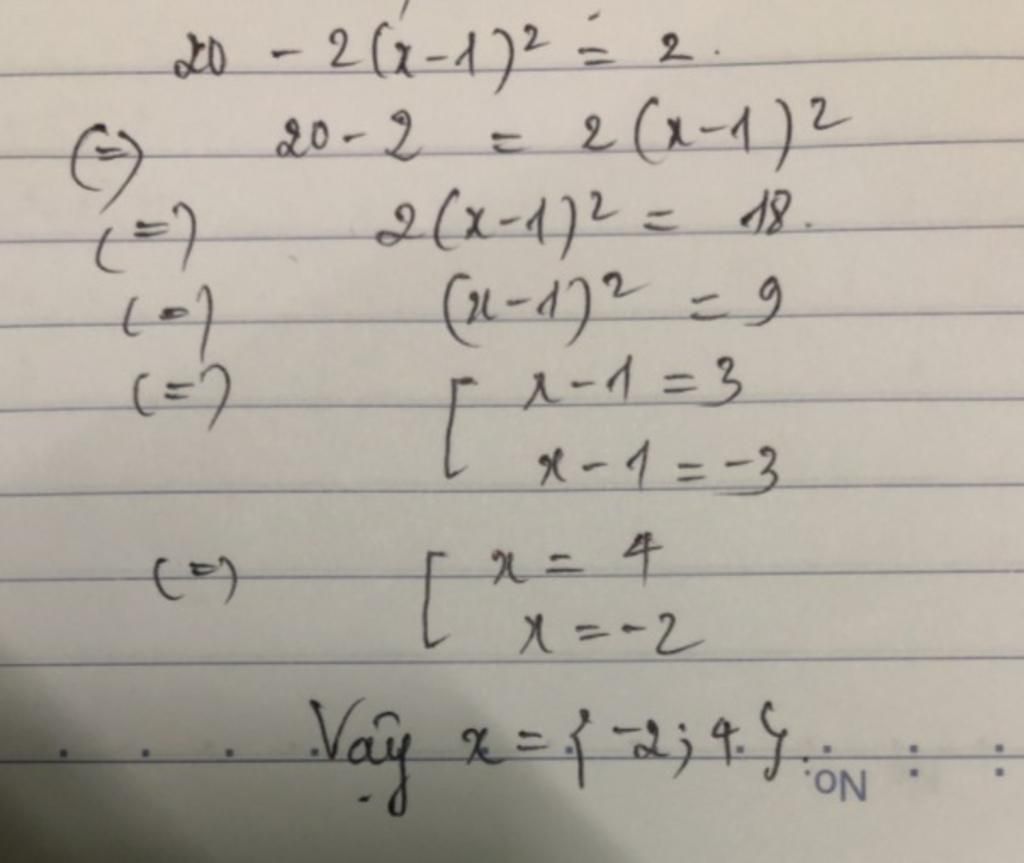 20 - 2(x-1)² = 2.
(=) 20 - 2 = 2(x-1)²
(=) 2(x-1)² = 18.
(=) (x-1)² = 9
(=) [ x - 1 = 3
x - 1 = -3
(=) [ x = 4
x = -2
Vậy x = {-2; 4}.
No.